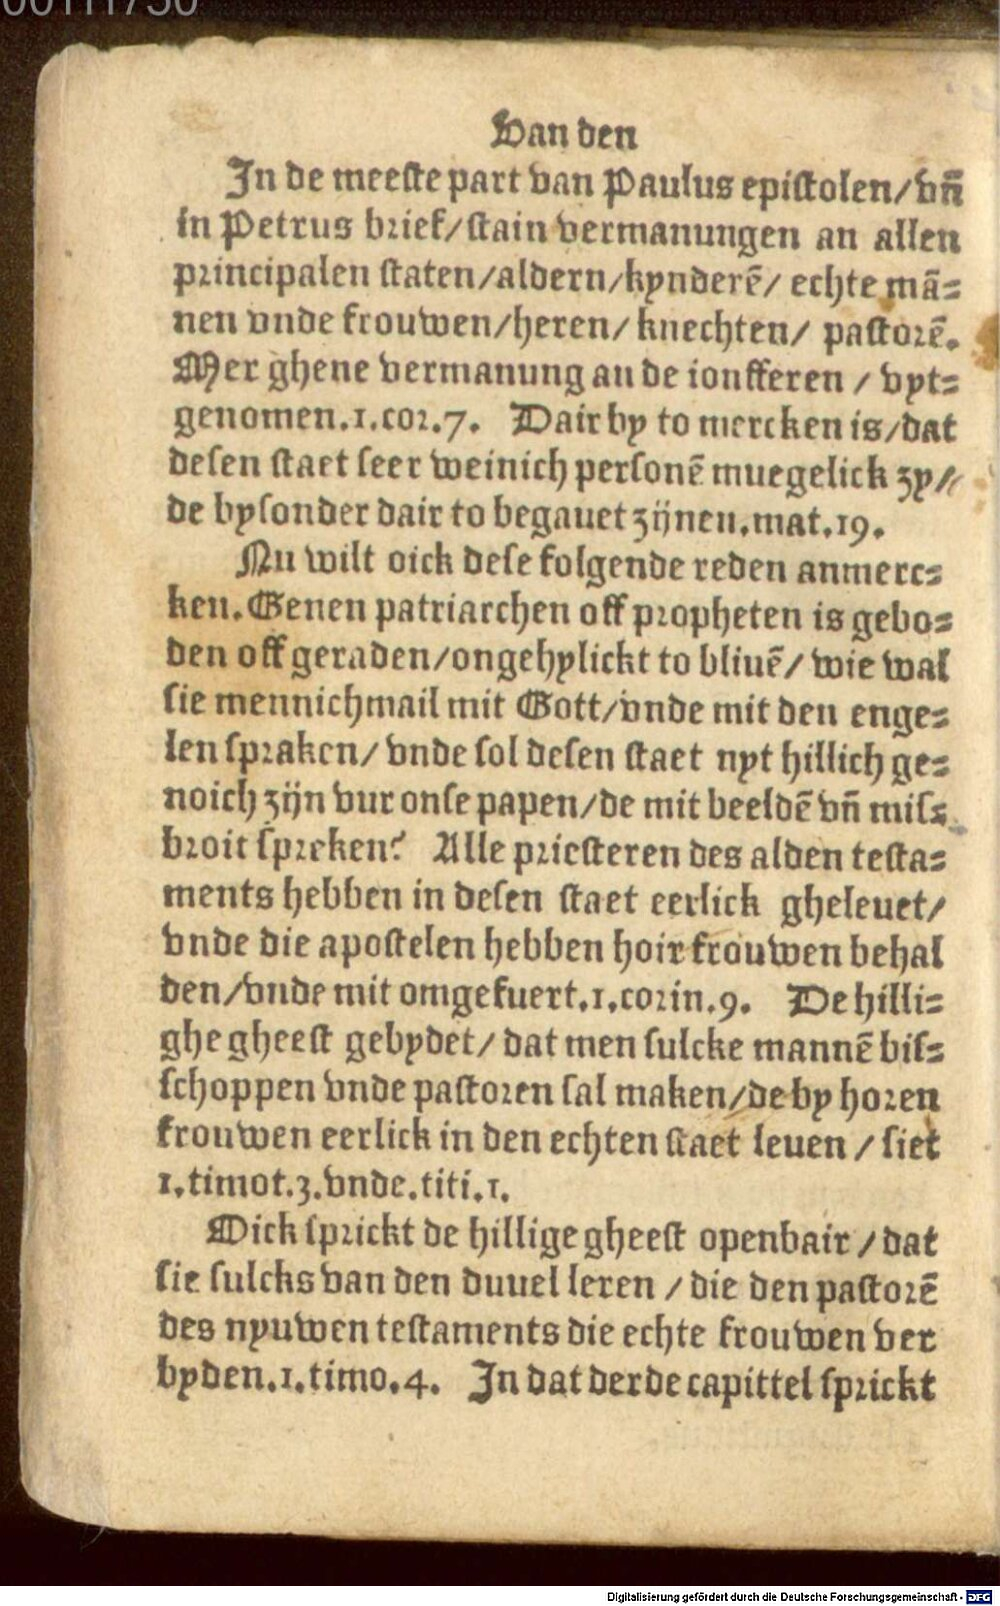 00111750
Van den
In de meeste part van Paulus epistolen/vn̄
in Petrus brief/stain vermanungen an allen
principalen staten/aldern/kynderē/ echte mā⸗
nen vnde frouwen/heren/ knechten/ pastorē.
Mer ghene vermanung an de ionfferen / vyt⸗
genomen.1.cor.7. Dair by to mercken is/dat
desen staet seer weinich personē muegelick zy/
de bysonder dair to begauet zijnen.mat.19.
Nu wilt oick dese folgende reden anmerc⸗
ken. Genen patriarchen off propheten is gebo⸗
den off geraden/ongehylickt to bliuē/ wie wal
sie mennichmail mit Gott/vnde mit den enge⸗
len spraken/ vnde sol desen staet nyt hillich ge⸗
noich zijn vur onse papen/de mit beeldē vn̄ mis⸗
broit spreken? Alle priesteren des alden testa⸗
ments hebben in desen staet eerlick gheleuet/
vnde die apostelen hebben hoir frouwen behal
den/vnde mit omgefuert.1.corin.9. De hilli⸗
ghe gheest gebydet/ dat men sulcke mannē bis⸗
schoppen vnde pastoren sal maken/de by horen
frouwen eerlick in den echten staet leuen / siet
1.timot.3.vnde.titi.1.
Oick sprickt de hillige gheest openbair / dat
sie sulcks van den duuel leren / die den pastorē
des nyuwen testaments die echte frouwen ver
byden.1.timo.4. In dat derde capittel sprickt
Digitalisierung gefördert durch die Deutsche Forschungsgemeinschaft - DFG